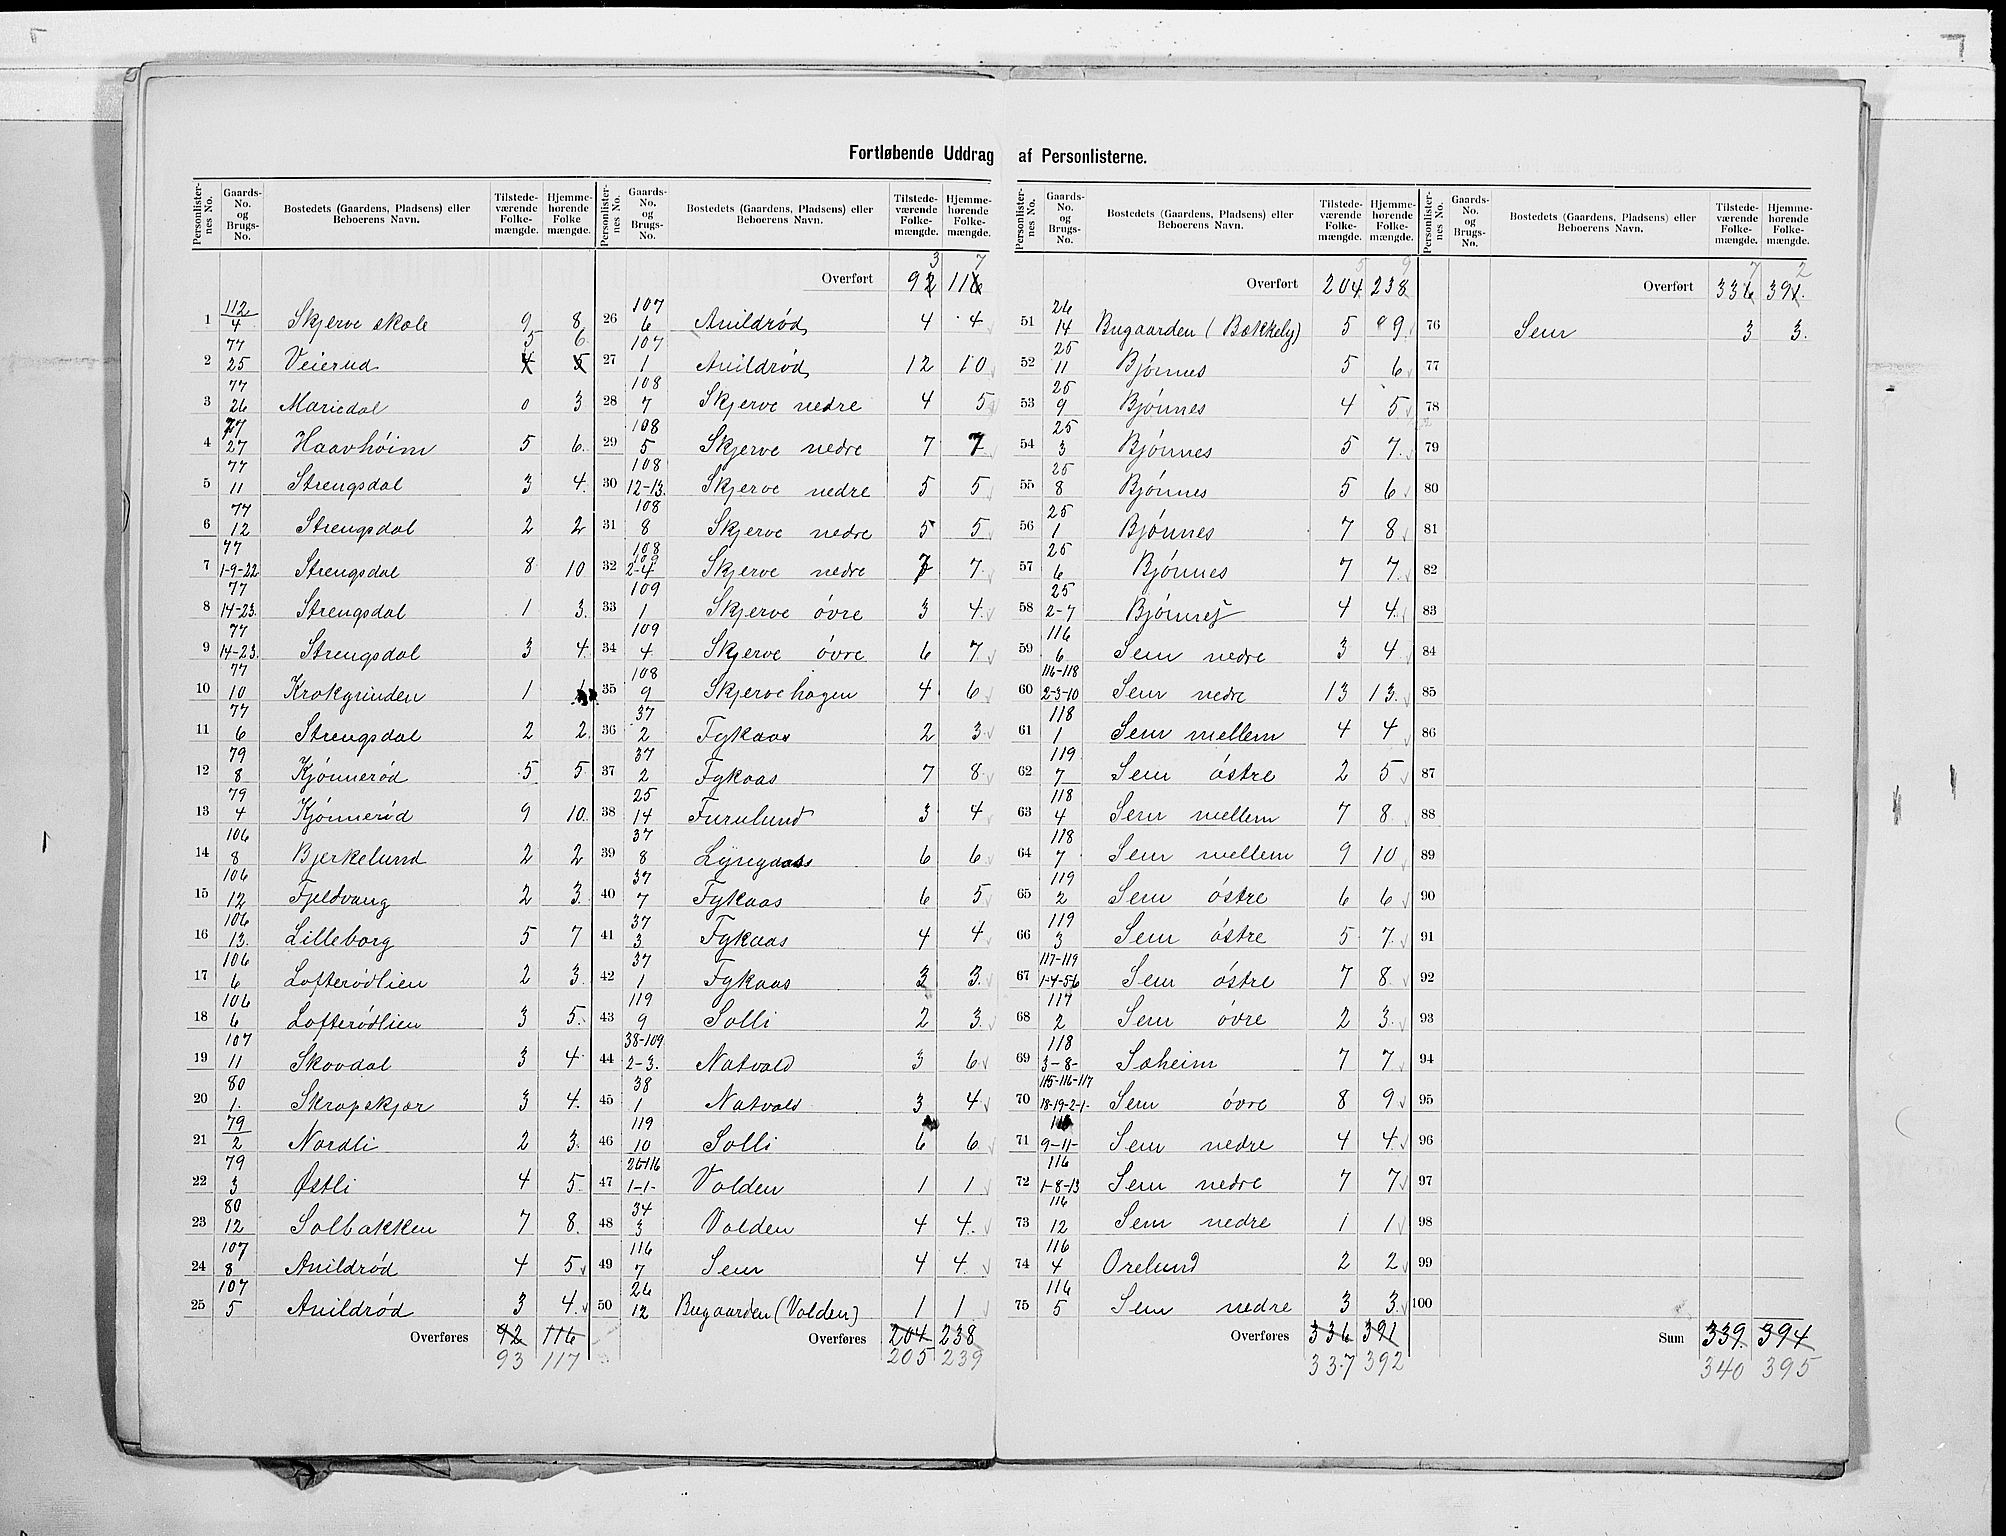 Fortløbende Uddrag af Personlisterne.
Personlisternes No. Gaards-No. og Brugs-No. Bostedets (Gaardens, Pladsens) eller Beboerens Navn. Tilstedeværende Folkemængde. Hjemmehørende Folke mængde.
1 112/4 Skjerve skole 9 8
2 77/25 Veierud 4 5 5 6
3 77/26 Mariedal 0 3
4 77/27 Haavhøim 5 6
5 77/11 Strengsdal 3 4
6 77/12 Strengsdal 2 2
7 77/1-9-22 Strengsdal 8 10
8 77/14-23 Strengsdal 1 3
9 77/14-23 Strengsdal 3 4
10 77/10 Krokgrinden 1
11 77/6 Strengsdal 2 2
12 79/8 Kjønnerød 5 5
13 79/4 Kjønnerød 9 10
14 106/8 Bjerkelund 2 2
15 106/12 Fjeldvang 2 3
16 106/13 Lilleborg 5 7
17 106/6 Lofterødlien 2 3
18 106/6 Lofterødlien 3 5
19 107/11 Skovdal 3 4
20 80/1 Skrapskjær 3 4
21 79/2 Nordli 2 3
22 79/3 Østli 4 5
23 80/12 Solbakken 7 8
24 107/8 Anildrød 4 5
25 107/5 Anildrød 3 4
Overføres 92 116
93 117
Personlisternes No. Gaards-No. og Brugs-No. Bostedets (Gaardens, Pladsens) eller Beboerens Navn. Tilstedeværende Folkemængde. Hjemmehørende Folkemængde.
3 7
Overført 92 116
26 107/6 Anildrød 4 4
27 107/1 Anildrød 12 10
28 108/7 Skjerve nedre 4 5
29 108/5 Skjerve nedre 7 7
30 108/12-13 Skjerve nedre 5 5
31 108/8 Skjerve nedre 5 5
32 108 109/2-4 Skjerve nedre 7 7
33 109/1 Skjerve øvre 3 4
34 109/4 Skjerve øvre 6 7
35 108/9 Skjerve hagen 4 6
36 37/2 Fykaas 2 3
37 37/2 Fykaas 7 8
38 25/14 Furulund 3 4
39 37/8 Lyngaas 6 6
40 37/7 Fykaas 6 5
41 37/3 Fykaas 4 4
42 37/1 Fykaas 3 3
43 119/9 Solli 2 3
44 38-109/2-3 Natvald 3 6
45 38/1 Natvald 3 4
46 119/10 Solli 6 6
47 26-116/1-1- Volden 1 1
48 34/3 Volden 4 4
49 116/7 Sem 4 4
50 26/12 Bugaarden (Volden) 1 1
Overføres 204 238
205 239
Personlisternes No. Gaards-No. og Brugs-No. Bostedets (Gaardens, Pladsens) eller Beboerens Navn. Tilstedeværende Folkemængde. Hjemmehørende Folkemængde.
5 9
Overført 204 238
51 26/14 Bugaarden (Bækkely) 5 9
52 25/11 Bjønnes 5 6
53 25/9 Bjønnes 4 5
54 25/3 Bjønnes 5 7
55 25/8 Bjønnes 5 6
56 25/1 Bjønnes 7 8
57 25/6 Bjønnes 7 7
58 25/2-7 Bjønnes 4 4
59 116/6 Sem nedre 3 4
60 116-118/2-3-10 Sem nedre 13 13
61 118/1 Sem mellem 4 4
62 119/7 Sem østre 2 5
63 118/4 Sem mellem 7 8
64 118/7 Sem mellem 9 10
65 119/2 Sem østre 6 6
66 119/3 Sem østre 5 7
67 117-119/1-4-5-6 Sem østre 7 8
68 117/2 Sem øvre 2 3
69 118/3-8- Sæheim 7 7
70 115-116-117/18-19-2-1- Sem øvre 8 9
71 9-11- Sem nedre 4 4
72 116/1-8-13 Sem nedre 7 7
73 116/12 Sem nedre 1 1
74 116/4 Orelund 2 2
75 116/5 Sem nedre 3 3
Overføres 336 391
337 392
Personlisternes No. Gaards-No. og Brugs-No. Bostedets (Gaardens, Pladsens) eller Beboerens Navn. Tilstedeværende Folkemængde. Hjemmehørende Folkemængde.
7 2
Overført 336 391
76 Sem 3 3
77
78
79
80
81
82
83
84
85
86
87
88
89
90
91
92
93
94
95
96
97
98
99
100
Sum 339 394
340 395